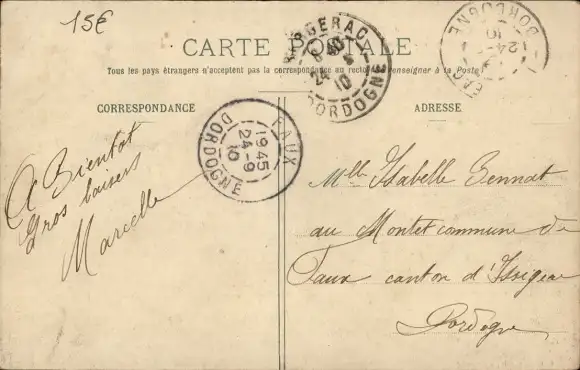 15€
CARTE POSTALE
Tous les pays étrangers n'acceptent pas la correspondance au recto renseigner à la Poste
CORRESPONDANCE
ADRESSE
BERGERAC
24 - 9
10
DORDOGNE
DORDOGNE
24 - 9
10
FAUX
19 45
24 - 9
10
DORDOGNE
A Bientot
Gros baisers
Marcelle
Mlle Isabelle Gennat
au Montet commune de
Faux canton d'Issigeac
Dordogne